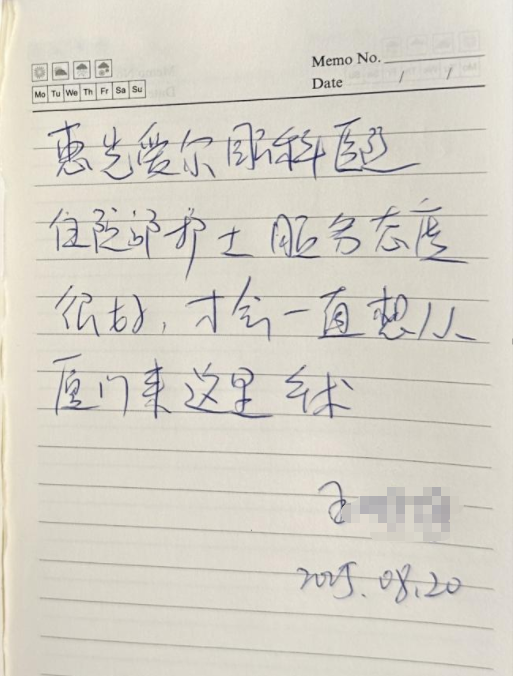 Memo No.
Mo Tu We Th Fr Sa Su
Date / /
惠先爱尔眼科医院
住院部护士服务态度
很好,才会一直想从
厦门来这里手术
王
2025.08.20